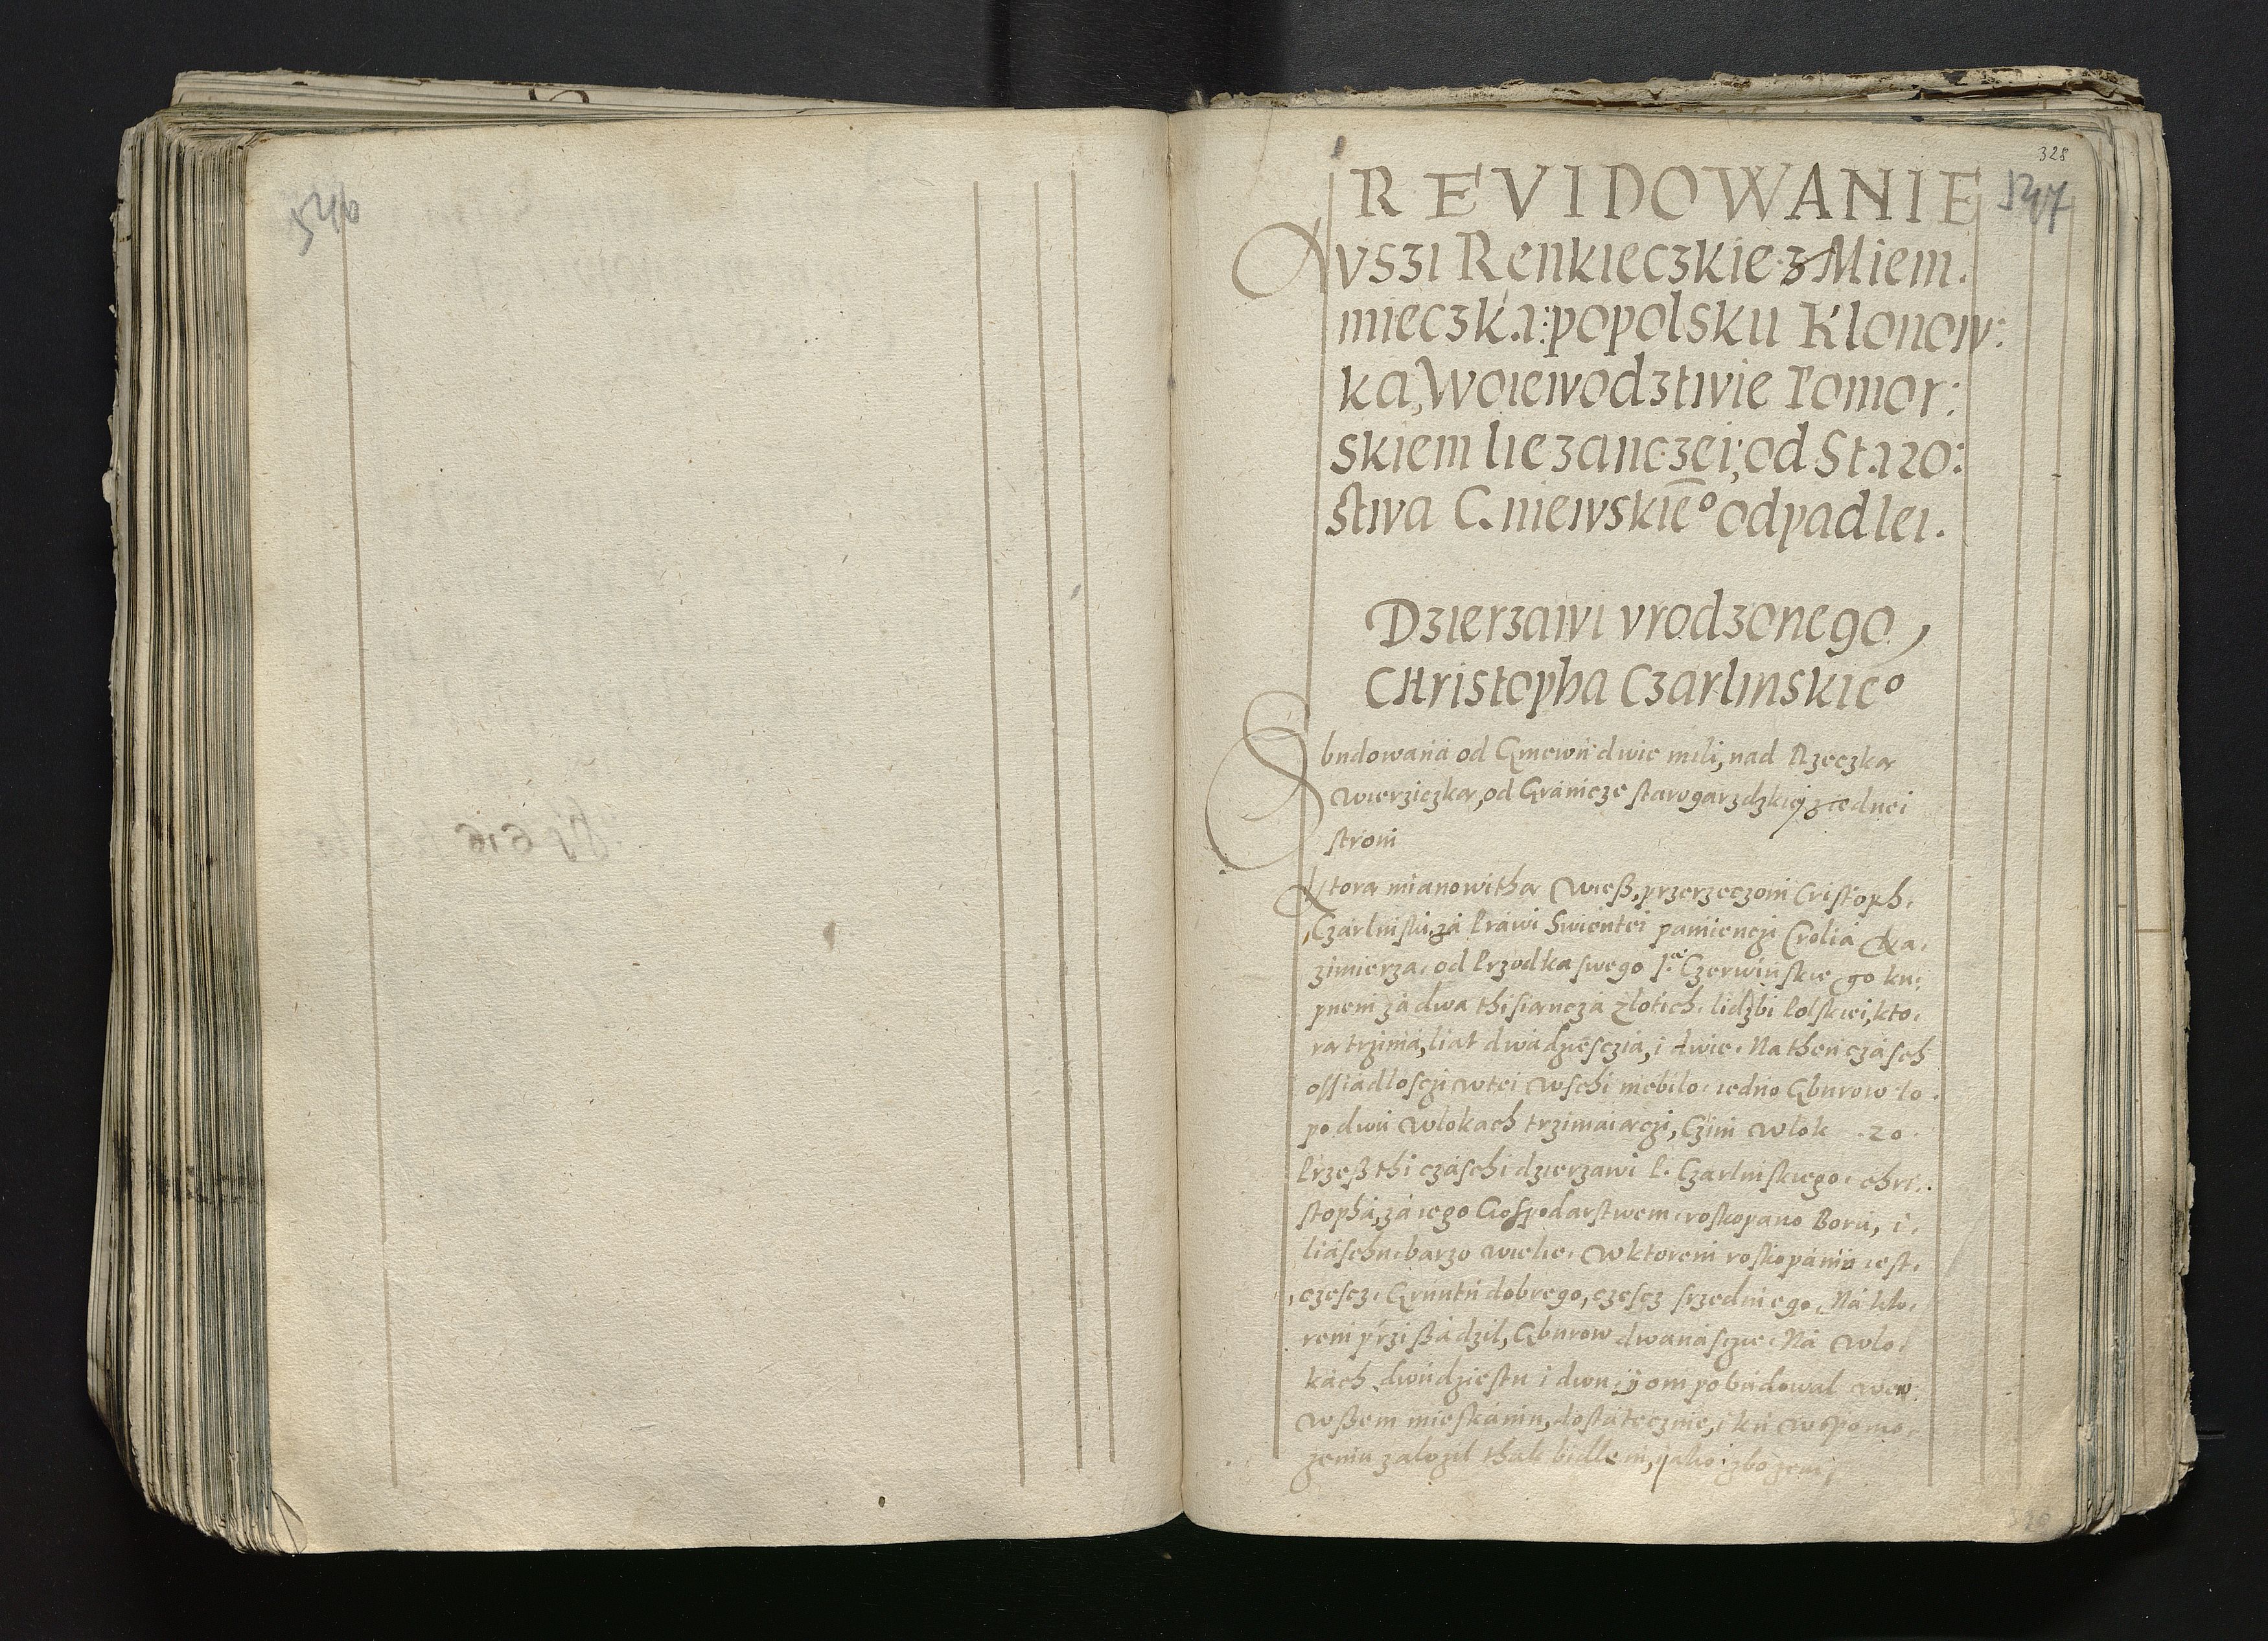 546
328
REVIDOWANIE 547
Vszi Renkieczkie z Miem.
mieczka: popolsku Klonow:
ka, Woiewodztwie Pomor:
skiem liezanczei, od Staro:
stwa Gniewskie° odpadlei.
Dzierzawi vrodzonego,
CHristopha Czarlinskie°
Sbudowana od Gmewu dwie mili, nad Rzeczka
Wierziczka, od Granicze starogardzkiej z iednei
stroni
Ktora mianowitha Wieß, przerzeczoni Cristoph.
Czarlinski, za Prawi Swientei pamienczi Crolia Ka.
zimierza, od Przodka swego Je Czerwinskiego ku:
pnem za dwa thisiancza zlotich. lidzbi Polskiei, kto.
ra trzima, liat dwadziesczia, i dwie. Na then czasch
ossiadlosczi wtei wschi niebilo. iedno Gburow 10.
po dwu Wlokach trzimaiaczi, Czini Wlok .20.
Przeß thi czaschi dzierzawi P. Czarlinskiego. Chri.
stopha, za iego Gospodarstwem. roskopano Boru, i.
liaschu. barzo wielie. Wktorem roskopaniu iest.
czescz. Gruntu dobrego, czescz srzedniego. Na kto.
rem przi ßadzil, Gburow dwanasczie. Na Wlo.
kach dwudziestu i dwu, y oni pobudowal wew
wßem mieskaniu, dostatecznie, i ku wspomo.
zeniu zalozil thak bidlem, jako i zbozem,